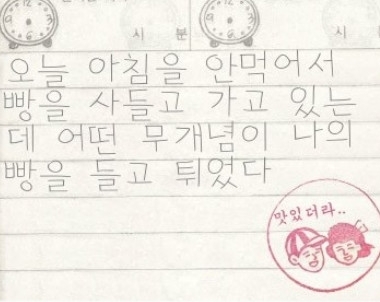 시 분 시
오늘 아침을 안먹어서
빵을 사들고 가고 있는
데 어떤 무개념이 나의
빵을 들고 튀었다
맛있더라..